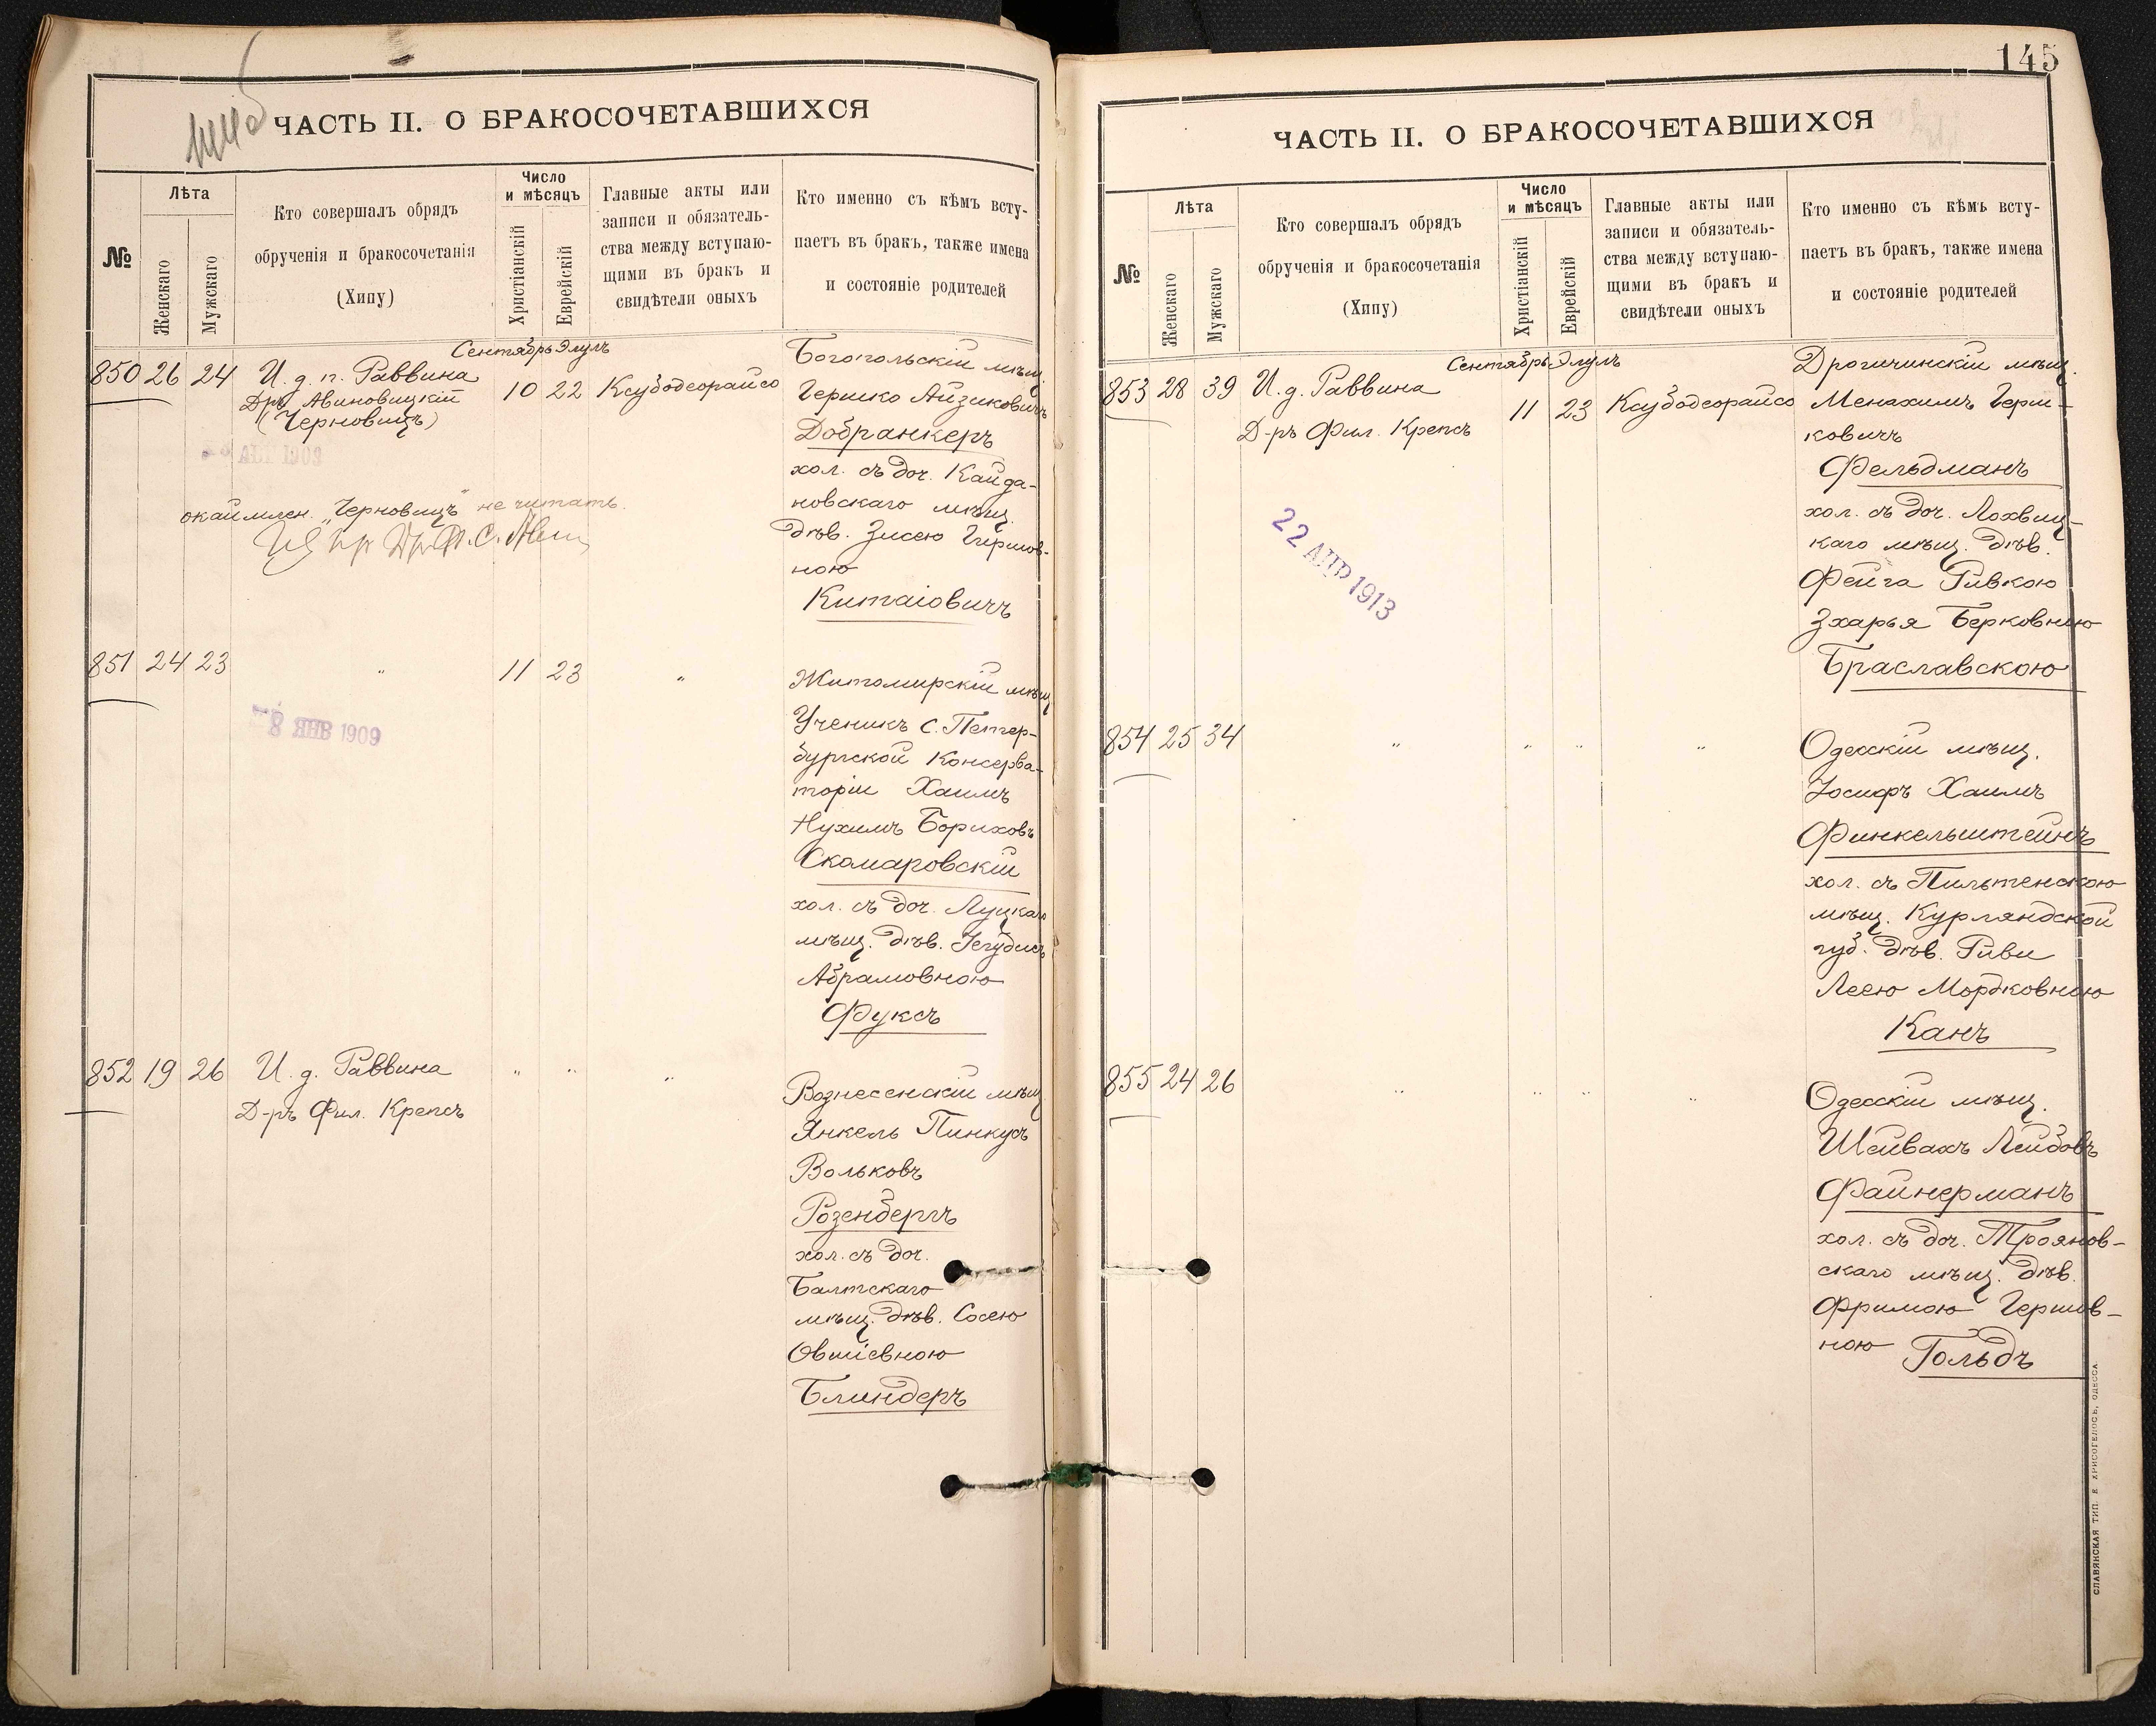 ЧАСТЬ II. О БРАКОСОЧЕТАВШИХСЯ
№
Лѣта
Женскаго
Мужскаго
Кто совершалъ обрядъ
обрученія и бракосочетанія
(Хипу)
Число
и мѣсяцъ
Христіанскій
Еврейскій
Главные акты или
записи и обязатель-
ства между вступаю-
щими въ бракъ и
свидѣтели оныхъ
Кто именно съ кѣмъ всту-
паетъ въ бракъ, также имена
и состояніе родителей
Сентябрь Элулъ
850 26 24 И. д. п. Раввина 10 22 Ксубодеорайсо
Дръ Авиновицкій
(Черновицъ)
окаймлен. „Черновицъ" не читать.
Богопольскій мѣщ.
Гершко Айзиковичъ
Добранкеръ
хол. съ доч. Кайда-
новскаго мѣщ.
дѣв. Зисею Гершов-
ною
Китаіовичъ
851 24 23 " 11 23 "
8 ЯНВ 1909
Житомирскій мѣщ
Ученикъ С. Петер-
бургской Консерва-
торіи Хаимъ
Нухимъ Бориховъ
Скомаровскій
хол. съ доч. Луцкаго
мѣщ. дѣв. Іегудисъ
Абрамовною
Фуксъ
852 19 26 И. д. Раввина " " "
Д-ръ Фил. Крепсъ
Вознесенскій мѣщ
Янкель Пинкусъ
Вольковъ
Розенбергъ
хол. съ доч.
Балтскаго
мѣщ. дѣв. Сосею
Овшіевною
Блиндеръ
145
ЧАСТЬ II. О БРАКОСОЧЕТАВШИХСЯ
№
Лѣта
Женскаго
Мужскаго
Кто совершалъ обрядъ
обрученія и бракосочетанія
(Хипу)
Число
и мѣсяцъ
Христіанскій
Еврейскій
Главные акты или
записи и обязатель-
ства между вступаю-
щими въ бракъ и
свидѣтели оныхъ
Кто именно съ кѣмъ всту-
паетъ въ бракъ, также имена
и состояніе родителей
Сентябрь Элулъ
853 28 39 И. д. Раввина 11 23 Ксубодеорайсо
Д-ръ Фил. Крепсъ
22 АПР 1913
Дрогичинскій мѣщ.
Менахимъ Герш-
ковичъ
Фельдманъ
хол. съ доч. Лохвиц-
каго мѣщ. дѣв.
Фейга Ривкою
Зхарья Берковною
Браславскою
854 25 34 " " " "
Одесскій мѣщ.
Іосифъ Хаимъ
Финкельштейнъ
хол. съ Пильтенскою
мѣщ. Курляндской
губ. дѣв. Риви
Леею Мордковною
Канъ
855 24 26 " " " "
Одесскій мѣщ.
Шейвахъ Лейбовъ
Файнерманъ
хол. съ доч. Троянов-
скаго мѣщ. дѣв.
Фримою Гершов-
ною Гольдъ
СЛАВЯНСКАЯ ТИП. Е ХРИСОГЕЛОСЪ, ОДЕССА